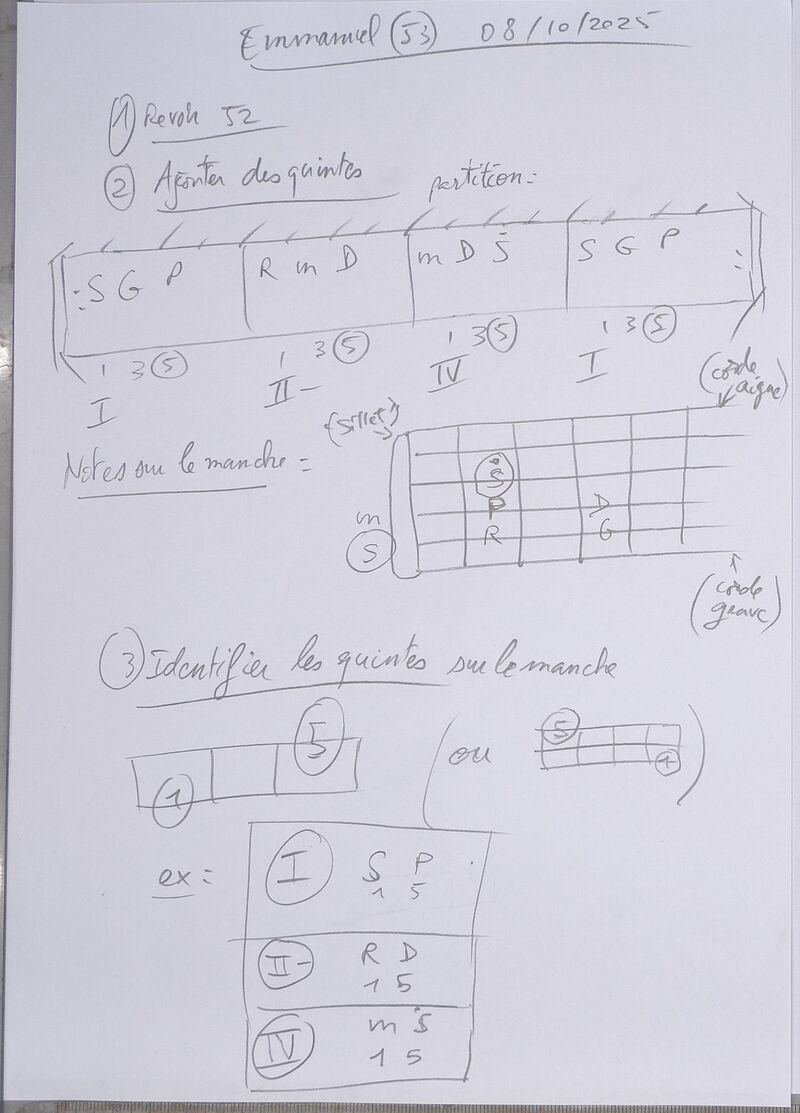 Emmanuel (53) 08/10/2025
1 Revoir 52
2 Ajouter des quintes partition :
: S G P | R m D | m D Ṡ | S G P :
1 3 5 1 3 5 1 3 5 1 3 5
I II- IV I
(corde aigue)
(sillet)
Notes sur le manche =
Ṡ
m P D
S R G
(corde grave)
3 Identifier les quintes sur le manche
1 5 (ou 5 1)
ex : I S P
1 5
II- R D
1 5
IV m Ṡ
1 5